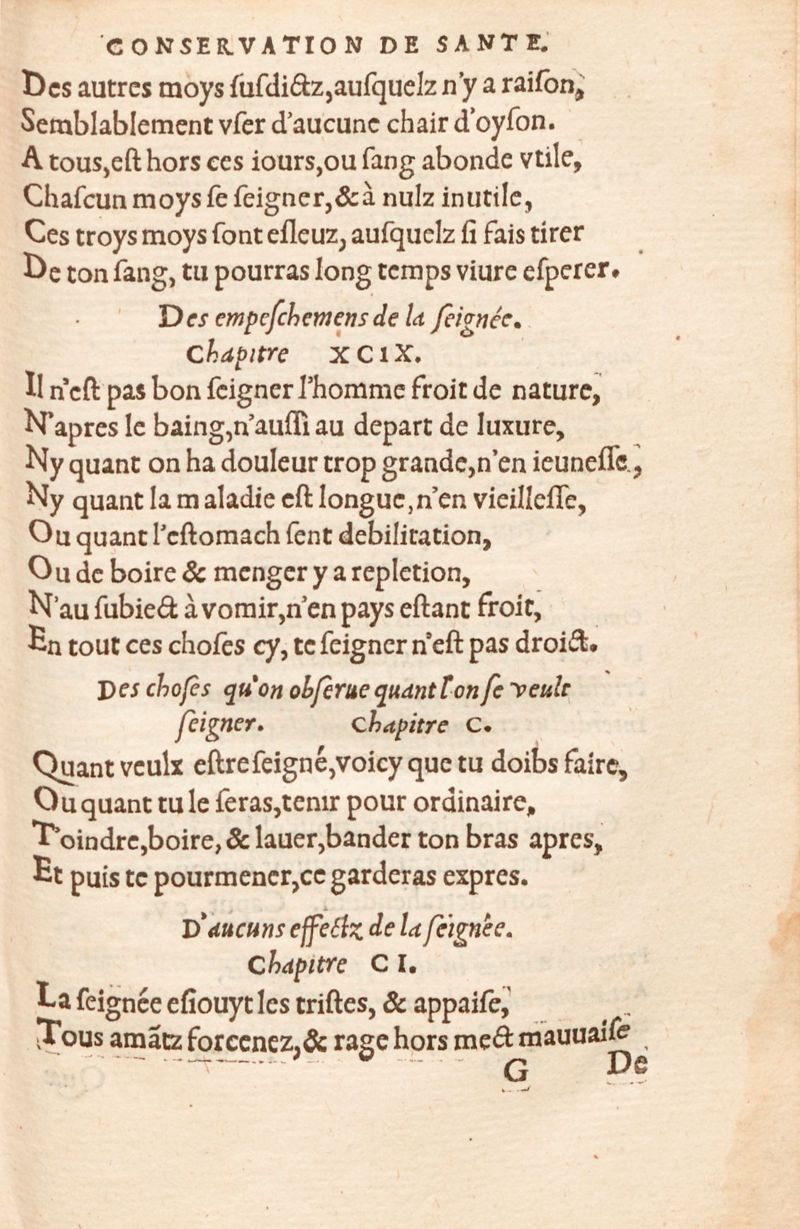 CONSERVATION DE SANTE.
Des autres moys ſuſdictz,auſquelz n'y a raiſon,
Semblablement vſer d'aucune chair d'oyſon.
A tous,eſt hors ces iours,ou ſang abonde vtile,
Chaſcun moys ſe ſeigner,&à nulz inutile,
Ces troys moys ſont eſleuz, auſquelz ſi fais tirer
De ton ſang, tu pourras long temps viure eſperer.
Des empeſchemens de la ſeignée.
Chapitre XCIX.
Il n'eſt pas bon ſeigner l'homme froit de nature,
N'apres le baing,n'auſſi au depart de luxure,
Ny quant on ha douleur trop grande,n'en ieuneſſe,
Ny quant la maladie eſt longue,n'en vieilleſſe,
Ou quant l'eſtomach ſent debilitation,
Ou de boire & menger y a repletion,
N'au ſubiect à vomir,n'en pays eſtant froit,
En tout ces choſes cy, te ſeigner n'eſt pas droict.
Des choſes qu'on obſerue quant l'on ſe veult
ſeigner. Chapitre C.
Quant veulx eſtre ſeigné,voicy que tu doibs faire,
Ou quant tu le ſeras,tenir pour ordinaire,
T'oindre,boire, & lauer,bander ton bras apres,
Et puis te pourmener,ce garderas expres.
D'aucuns effectz de la ſeignée.
Chapitre CI.
La ſeignée eſiouyt les triſtes, & appaiſe,
Tous amãtz forcenez,& rage hors mect mauuaiſe
G De